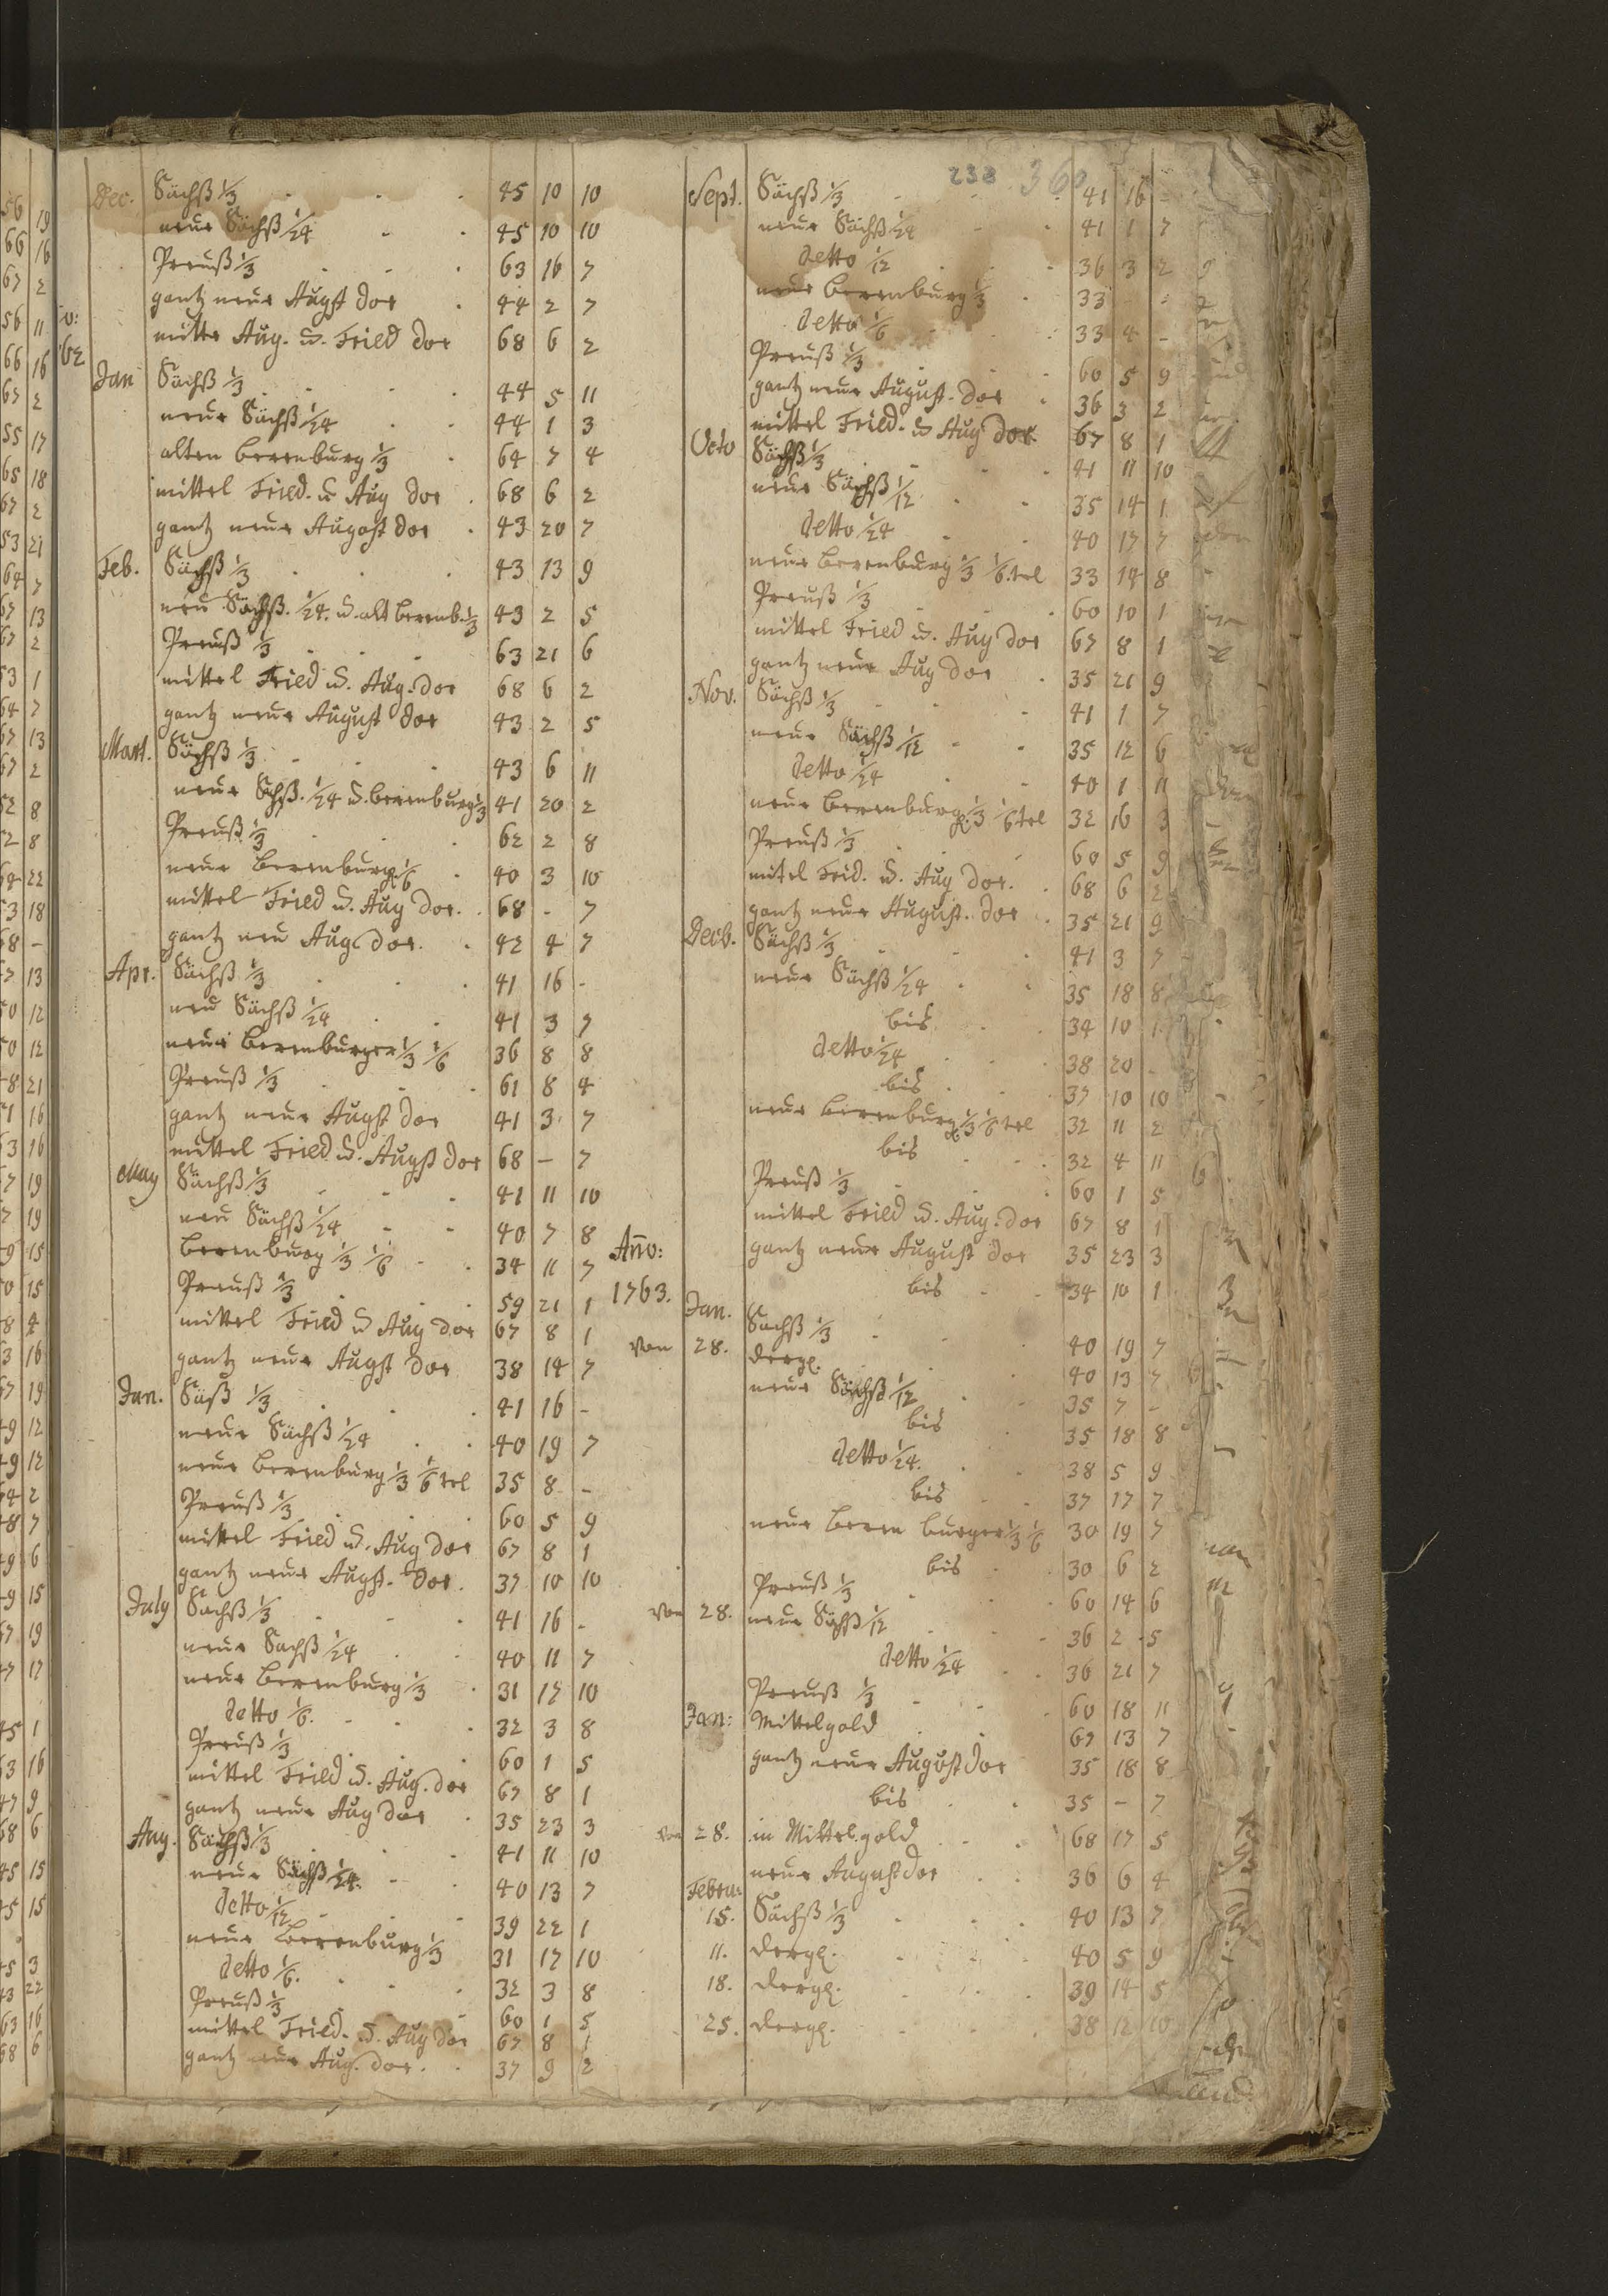 238 360
Dec. Sächß 1/3 45 10 10
neue Sächß 1/24 45 10 10
Preuß 1/3 63 16 7
gantz neue Augst dor 44 2 7
mittl Aug. u. Fried dor 68 6 2
62
Jan Sächß 1/3 44 5 11
neue Sächß 1/24 44 1 3
alten berenburg 1/3 64 7 4
mittel Fried. u Aug dor 68 6 2
gantz neue August dor 43 20 7
Feb. Sächß 1/3 43 13 9
neu Sächß. 1/24. u. alt berenb. 1/3 43 2 5
Preuß 1/3 63 21 6
mittel Fried u. Aug. dor 68 6 2
gantz neue August dor 43 2 5
Mart. Sächß 1/3 43 6 11
neue Sächß. 1/24 u. berenburg 1/3 41 20 2
Preuß 1/3 62 2 8
neue berenburg. 1/6 40 3 10
mittel Fried u. Aug dor. 68 - 7
gantz neu Aug. dor. 42 4 7
Apr. Sächß 1/3 41 16 -
neu Sächß 1/24 41 3 7
neue berenburger 1/3 1/6 36 8 8
Preuß 1/3 61 8 4
gantz neue Augst dor 41 3 7
mittel Fried u. Augst dor 68 - 7
May Sächß 1/3 41 11 10
neu Sächß 1/24 40 7 8
berenburg 1/3 1/6 34 11 7
Preuß 1/3 59 21 1
mittel Fried u Aug dor 67 8 1
gantz neue Augst dor 38 14 7
Jun. Säß 1/3 41 16 -
neue Sächß 1/24 40 19 7
neue berenburg 1/3 1/6 tel 35 8 -
Preuß 1/3 60 5 9
mittel Fried u. Aug dor 67 8 1
gantz neue Augst. dor. 37 10 10
July Sachß 1/3 41 16 -
neue Sachß 1/24 40 11 7
neue berenburg 1/3 31 17 10
detto 1/6. 32 3 8
Preuß 1/3 60 1 5
mittel Fried u. Aug. dor 67 8 1
gantz neue Aug dor 35 23 3
Aug. Sächß 1/3 41 11 10
neue Sächß 1/24. 40 13 7
detto 1/12 39 22 1
neue berenburg 1/3 31 17 10
detto 1/6. 32 3 8
Preuß 1/3 60 1 5
mittel Fried. u. Aug dor 67 8 1
gantz neue Aug. dor. 37 9 2
Sept. Sächß 1/3 41 16 -
neue Sächß 1/24 41 1 7
detto 1/12 36 3 2
neue berenburg 1/3 33 -
detto 1/6 33 4 -
Preuß 1/3 60 5 9
gantz neue August. dor 36 3 2
mittel Fried. u Aug dor. 67 8 1
Octo Sächß 1/3 41 11 10
neue Sächß 1/12 35 14 1
detto 1/24 40 17 7
neue berenburg 1/3 1/6. tel 33 14 8
Preuß 1/3 60 10 1
mittel Fried u. Aug dor 67 8 1
gantz neue Aug dor 35 21 9
Nov. Sächß 1/3 41 1 7
neue Sächß 1/12 35 12 6
detto 1/24 40 1 11
neue berenburg. 1/3 1/6 tel 32 16 3
Preuß 1/3 60 5 9
mitel Frid. u. Aug dor. 68 6 2
gantz neue August. dor 35 21 9
Decb. Sächß 1/3 41 3 7
neue Sächß 1/24 35 18 8
bis 34 10 1
detto 1/24 38 20 -
bis 37 10 10
neue berenburg. 1/3 1/6 tel 32 11 2
bis 32 4 11
Preuß 1/3 60 1 5
mittel Fried u. Aug. dor 67 8 1
gantz neue August dor 35 23 3
bis 34 10 1
Año:
1763. Jan. Sachß 1/3 40 19 7
von 28. dergl. 40 13 7
neue Sächß 1/12 35 7 -
bis 35 18 8
detto 1/24. 38 5 9
bis 37 17 7
neue beren burger 1/3 1/6 30 19 7
bis 30 6 2
Preuß 1/3 60 14 6
von 28. neue Sächß 1/12 36 2 5
detto 1/24 36 21 7
Preuß 1/3 60 18 11
Jan: Mittelgold 67 13 7
gantz neue August dor 35 18 8
bis 35 - 7
von 28. in Mittel. gold 68 17 5
neue August dor 36 6 4
Febru:
15. Sächß 1/3 40 13 7
11. dergl. 40 5 9
18. dergl. 39 14 5
25. dergl. 38 12 10